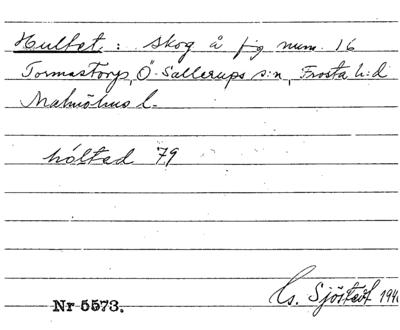 Hultet : skog å fig num. 16
Tormastorp, Ö. Sallerups s:n, Frosta h:d
Malmöhus l.
hóltad 79
Cs. Sjöstedt 194
Nr 5573.